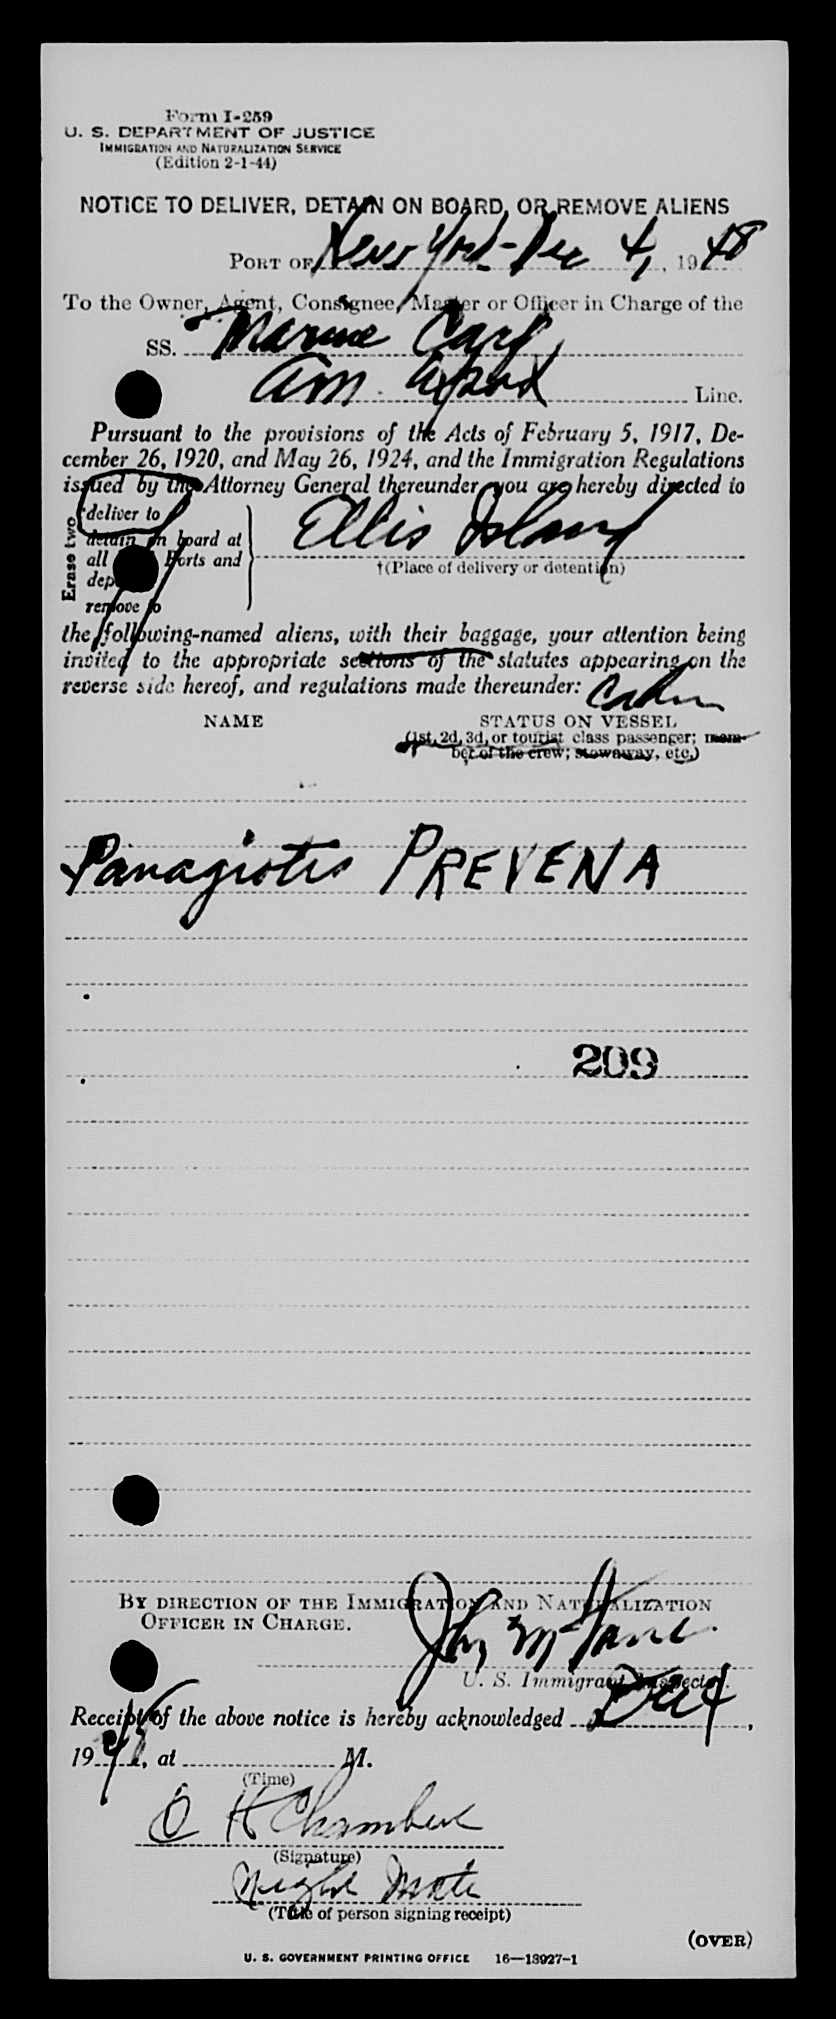 Form I-259
U. S. DEPARTMENT OF JUSTICE
IMMIGRATION AND NATURALIZATION SERVICE
(Edition 2-1-44)
NOTICE TO DELIVER, DETAIN ON BOARD, OR REMOVE ALIENS
PORT OF New York - Dec 4, 1948
To the Owner, Agent, Consignee, Master or Officer in Charge of the
SS. Marine Carp
Am. Export Line.
Pursuant to the provisions of the Acts of February 5, 1917, De-
cember 26, 1920, and May 26, 1924, and the Immigration Regulations
issued by the Attorney General thereunder you are hereby directed to
Erase two
deliver to
detain on board at
all Ports and
remove to
Ellis Island
†(Place of delivery or detention)
the following-named aliens, with their baggage, your attention being
invited to the appropriate sections of the statutes appearing on the
reverse side hereof, and regulations made thereunder:
Cabin
NAME STATUS ON VESSEL
(1st, 2d, 3d, or tourist class passenger; mem-
ber of the crew; stowaway, etc.)
Panagiotis PREVENA
209
BY DIRECTION OF THE IMMIGRATION AND NATURALIZATION
OFFICER IN CHARGE.
U. S. Immigrant Inspector.
Receipt of the above notice is hereby acknowledged Dec 4,
1948, at M.
(Time)
O H Chambers
(Signature)
Night Mate
(Title of person signing receipt)
(OVER)
U. S. GOVERNMENT PRINTING OFFICE 16—13927-1